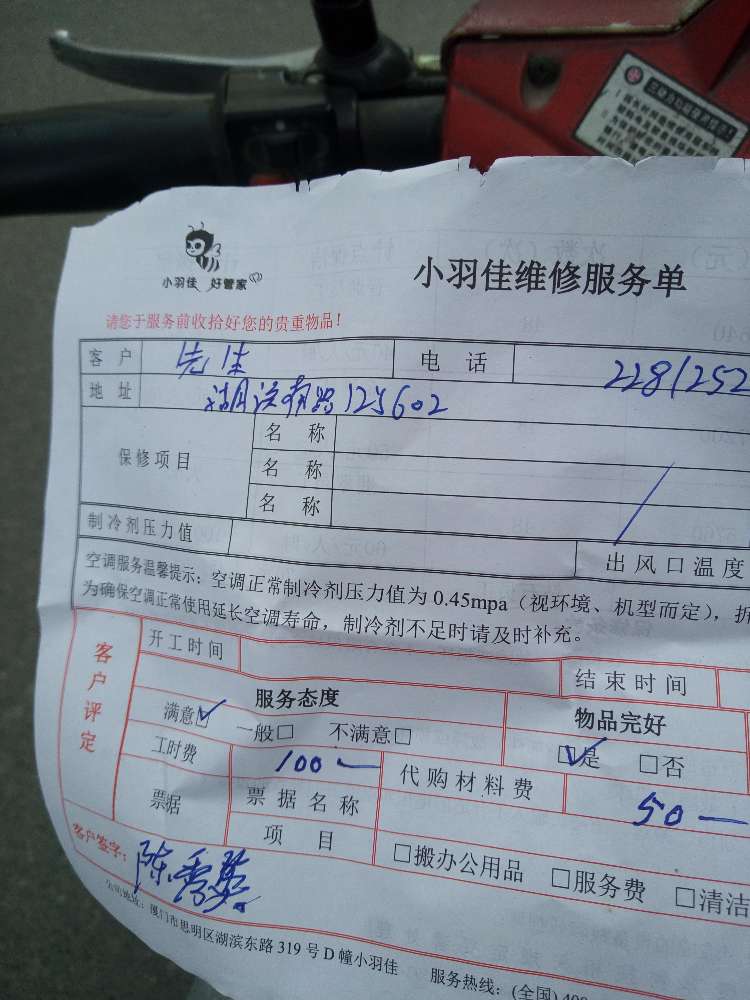 小羽佳 好管家
小羽佳维修服务单
请您于服务前收拾好您的贵重物品！
客户 先生 电话 2281252
地址 湖滨南路125602
保修项目
名称
名称
名称
制冷剂压力值
出风口温度
空调服务温馨提示：空调正常制冷剂压力值为 0.45mpa（视环境、机型而定），拆
为确保空调正常使用延长空调寿命，制冷剂不足时请及时补充。
客户评定
开工时间
结束时间
服务态度
物品完好
满意☑ 一般□ 不满意□
☑是 □否
工时费 100一
代购材料费 50一
票据
票据名称
项目
□搬办公用品 □服务费 □清洁
客户签字：陈秀英
厦门市思明区湖滨东路 319 号 D 幢小羽佳 服务热线：(全国) 400